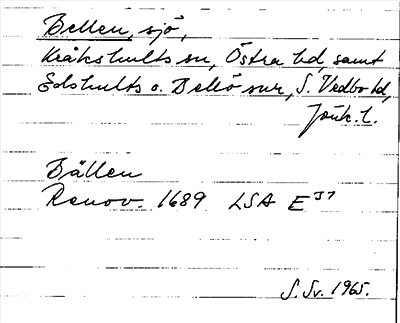 Bellen, sjö,
Kråkshults sn, Östra hd, samt
Edshults o. Bellö snr, S. Vedbo hd,
Jönk. l.
Bällen
Renov. 1689 LSA E37
S. Sv. 1965.